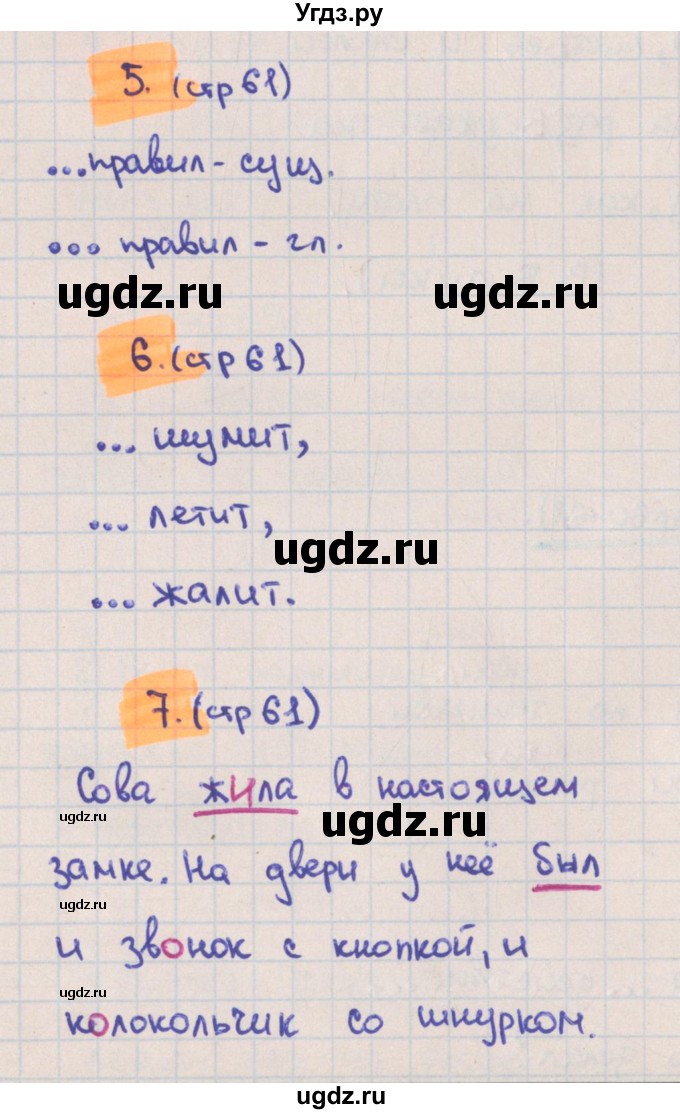 Угдз.ру
5. (стр 61)
...правил - сущ.
... правил - гл.
ugdz.ru ugdz.ru
6. (стр 61)
... шумит,
... летит,
ugdz.ru
... жалит.
7. (стр 61)
Сова жила в настоящем
ugdz.ru ugdz.ru
замке. На двери у неё был
ugdz.ru
и звонок с кнопкой, и
ugdz.ru
колокольчик со шнурком.
ugdz.ru